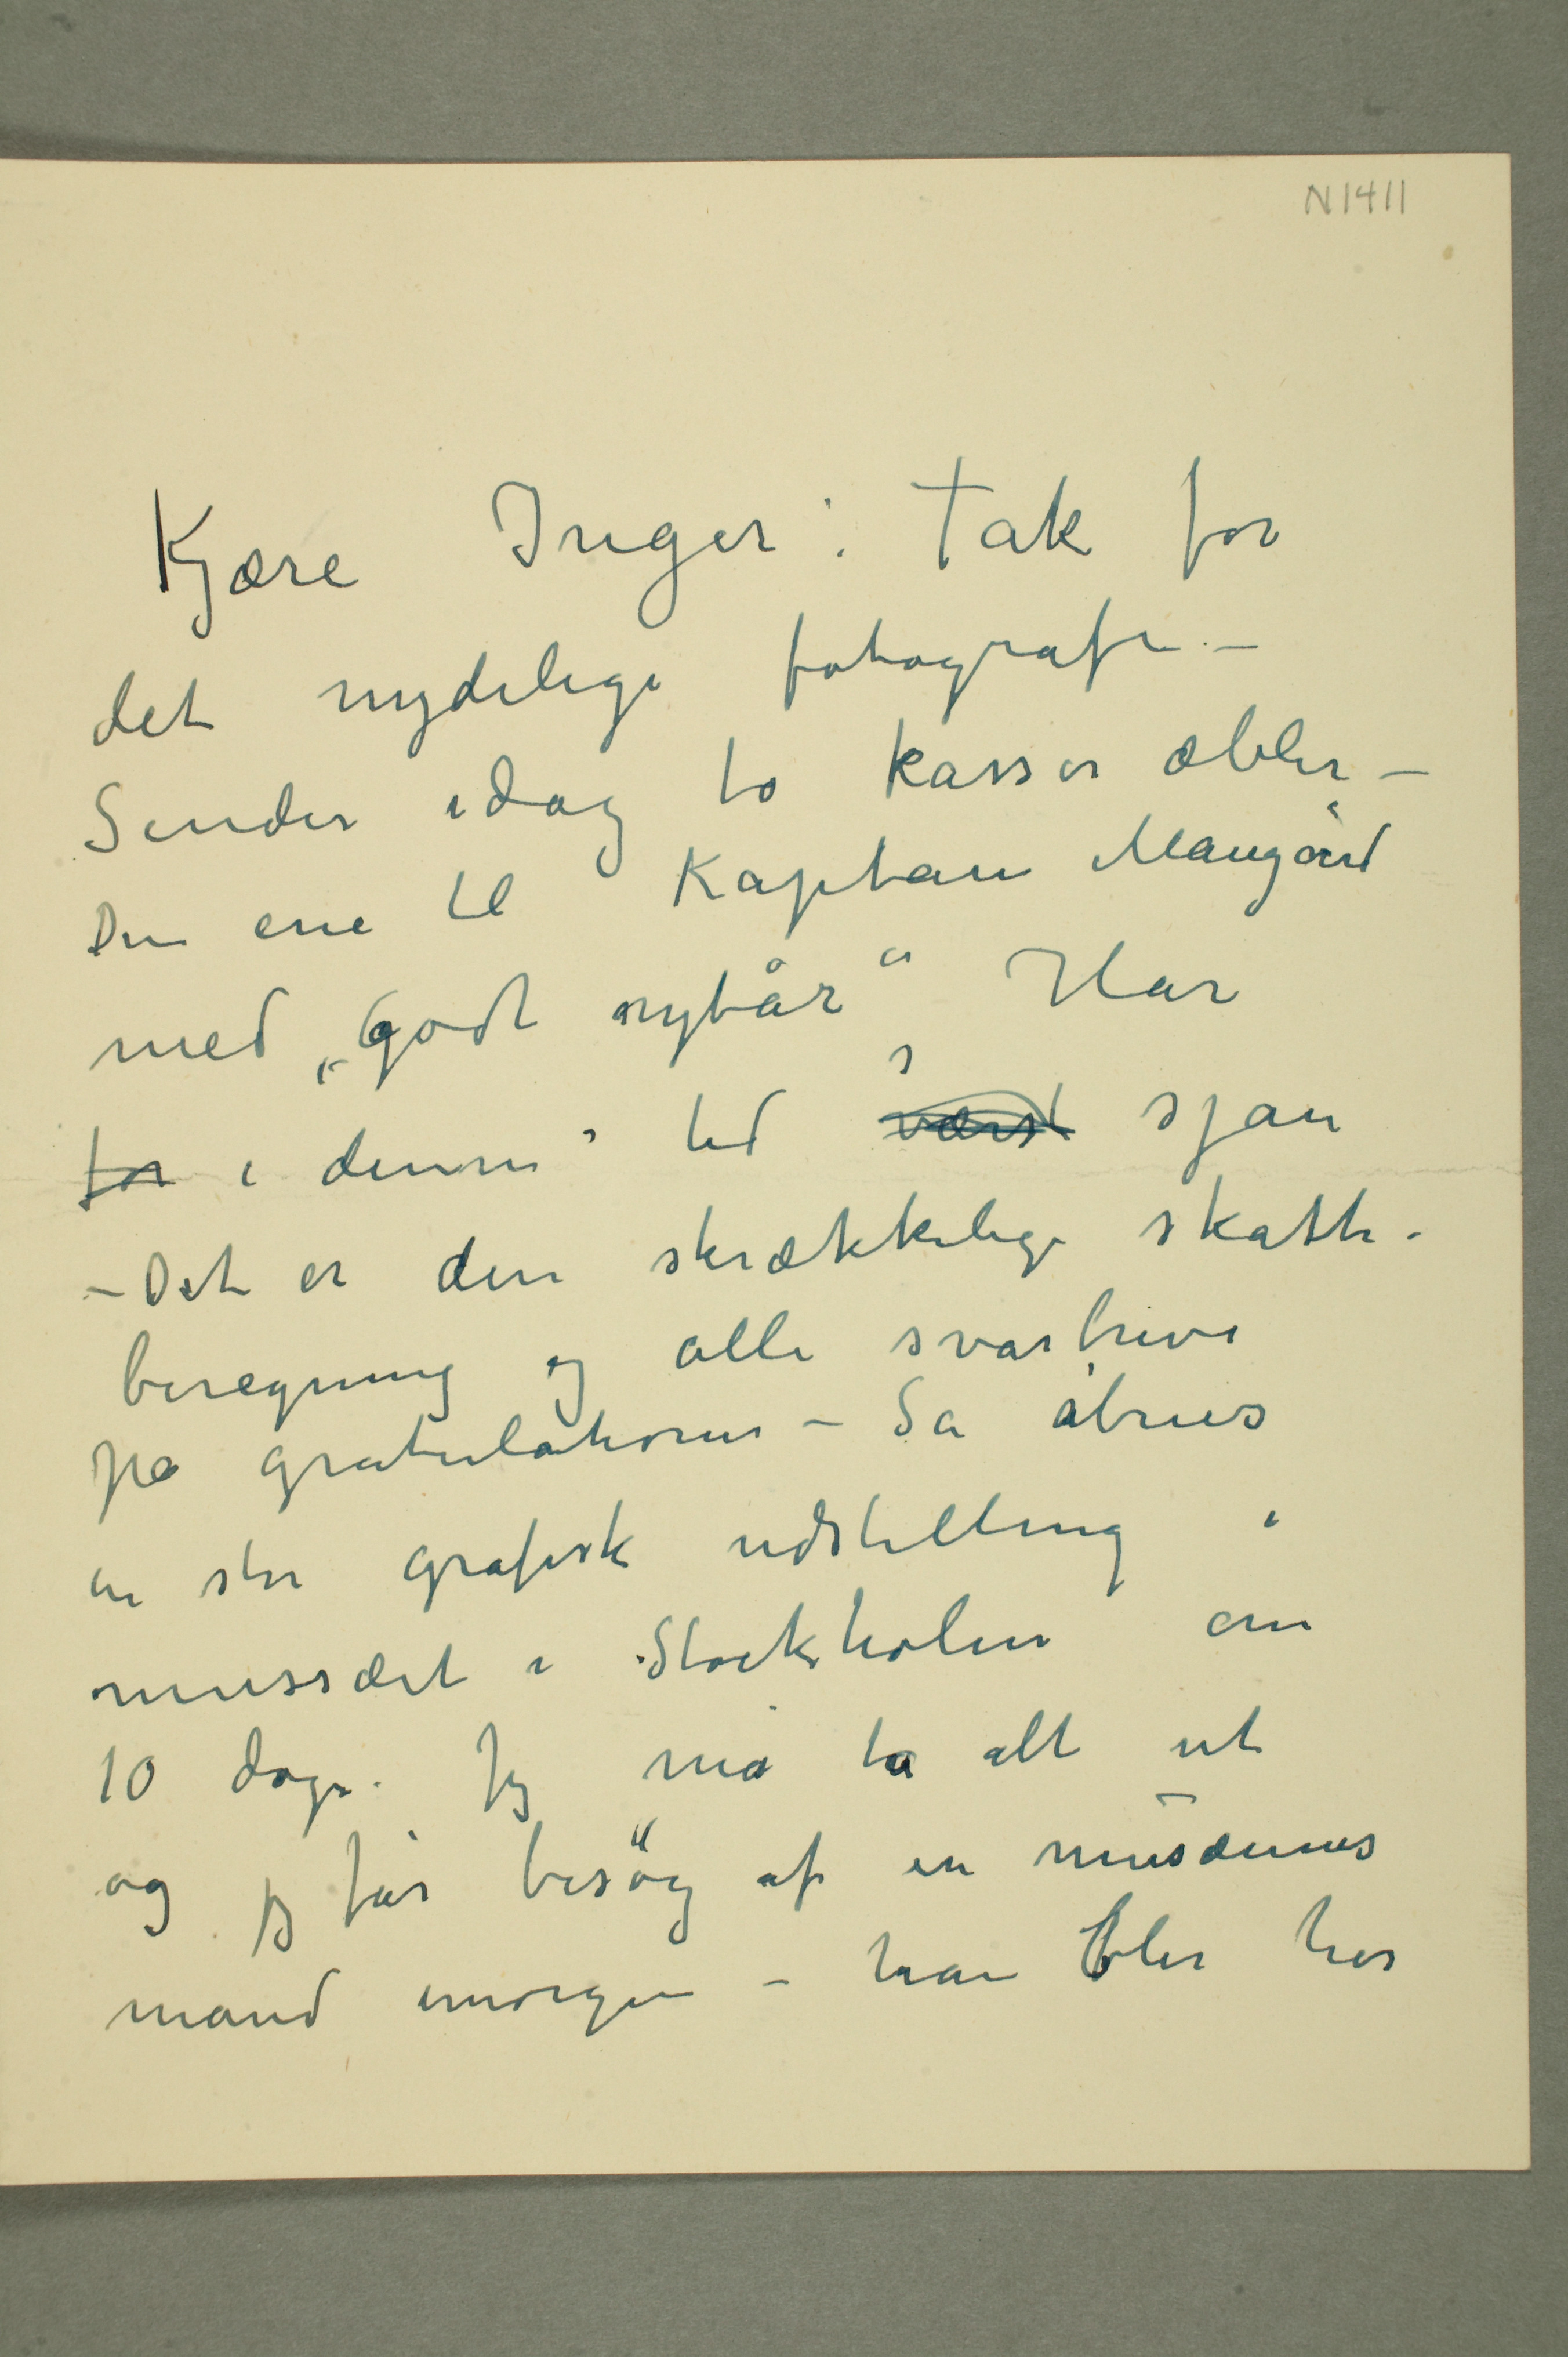 N1411
Kjære Inger: Tak for
det nydelige fotografi –
Sender idag to kasser æbler –
Den ene til Kaptain Maugård
med „Godt nytår“ Har
for i denne tid værst sjau
– Det er den skrækkelige skatte-
beregning og alle svarbreve
på gratulationer – Så åbnes
en stor grafisk udstilling i
mussæet i Stockholm om
10 dage. Jeg må ta alt ut
og jeg får besøg af en musæums
mand imorgen – han blir her